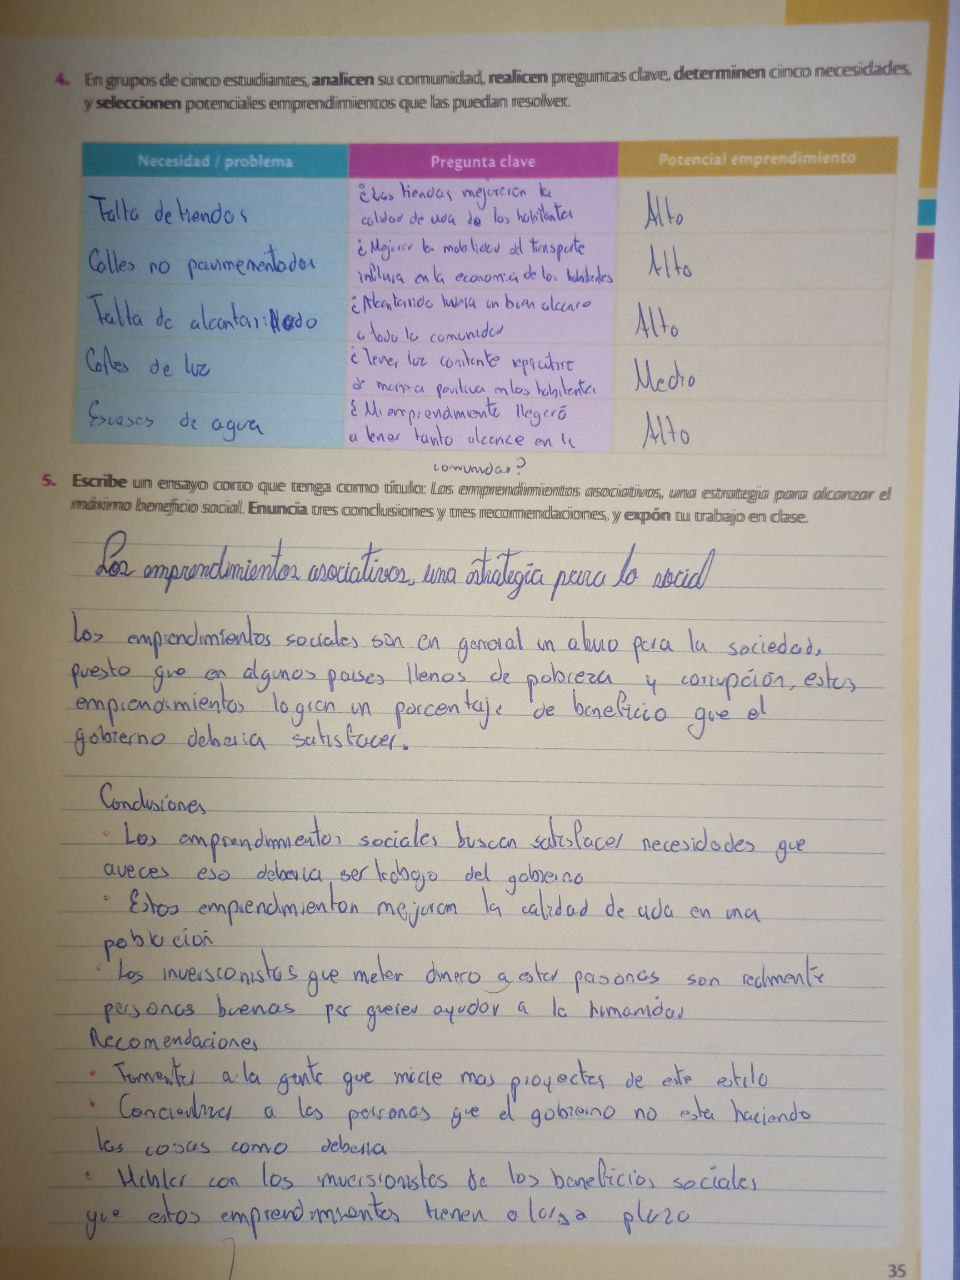 4. En grupos de cinco estudiantes, analicen su comunidad, realicen preguntas clave, determinen cinco necesidades,
y seleccionen potenciales emprendimientos que las puedan resolver.
Necesidad / problema
Pregunta clave
Potencial emprendimiento
Falta de tiendas
¿Las tiendas mejoraran la
calidad de vida de los habitantes
Alto
Calles no pavimementados
¿Mejorar la mobilidad del transporte
influira en la economia de los habitantes
Alto
Falta de alcantarillado
¿Alcantarido tuviera un buen alcance
a toda la comunidad
Alto
Calles de luz
¿tener luz constante repercutire
de manera positiva en los habitantes
Medio
Escases de agua
¿Mi emprendimiento llegará
a tener tanto alcance en la
comunidad?
Alto
5. Escribe un ensayo corto que tenga como título: Los emprendimientos asociativos, una estrategia para alcanzar el
máximo beneficio social. Enuncia tres conclusiones y tres recomendaciones, y expón tu trabajo en clase.
Los emprendimientos asociativos, una estrategia para lo social
Los emprendimientos sociales son en general un alivio para la sociedad,
puesto que en algunos paises llenos de pobreza y corrupción, estos
emprendimientos logran un porcentaje de beneficio que el
gobierno deberia satisfacer.
Conclusiones
· Los emprendimientos sociales buscan satisfacer necesidades que
aveces eso deberia ser trabajo del gobierno
· Estos emprendimienton mejoran la calidad de vida en una
población
· Los inversconistas que meten dinero a estas personas son realmente
personas buenas por querer ayudar a la humanidad
Recomendaciones
· Fomentar a la gente que inicie mas proyectos de este estilo
· Concientizar a las personas que el gobierno no esta haciendo
las cosas como deberia
· Hablar con los inversionistas de los beneficios sociales
que estos emprendimientos tienen a larga plazo
35